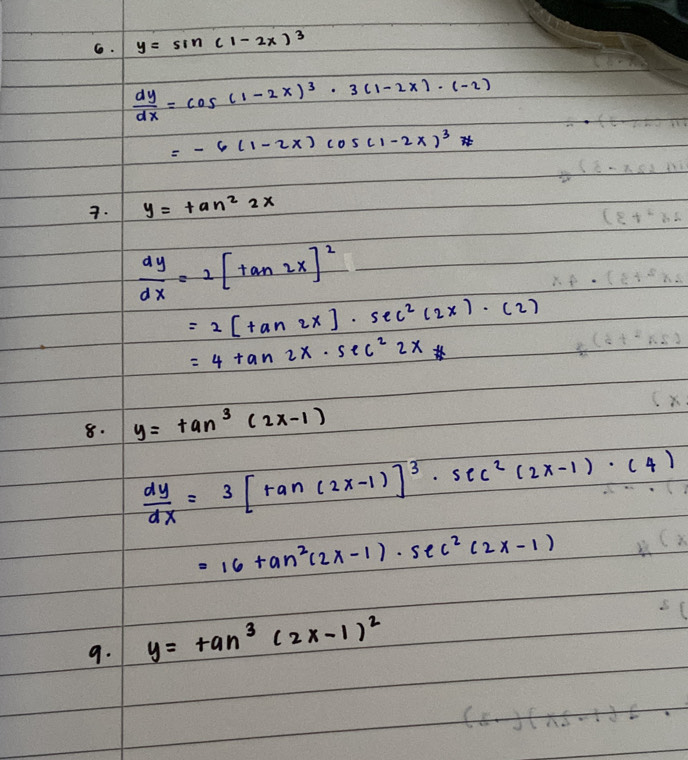 6. y = sin (1-2x)³
dy/dx = cos (1-2x)³ · 3(1-2x) · (-2)
= -6(1-2x) cos(1-2x)³ #
7. y = tan² 2x
dy/dx = 2[tan 2x]²
= 2[tan 2x] · sec² (2x) · (2)
= 4 tan 2x · sec² 2x #
8. y = tan³ (2x-1)
dy/dx = 3[tan (2x-1)]³ · sec² (2x-1) · (4)
= 16 tan²(2x-1) · sec² (2x-1)
9. y = tan³ (2x-1)²